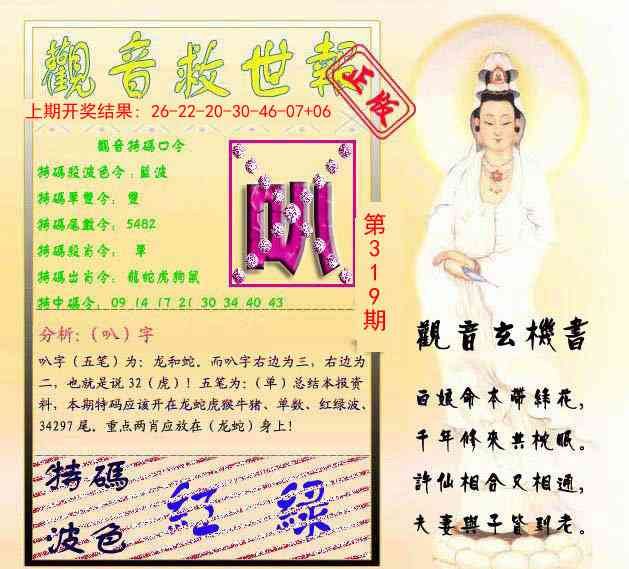 觀音救世報
正版
上期开奖结果：26-22-20-30-46-07+06
觀音特碼口令
特碼段波色令：藍波
特碼單雙令：雙
特碼尾數令：5482
特碼段肖令：單
特碼出肖令：龍蛇虎狗鼠
特中碼令：09 14 17 21 30 34 40 43
叭
第319期
分析：（叭）字
叭字（五笔）为：龙和蛇。而叭字右边为三，右边为
二，也就是说 32（虎）！五笔为：（单）总结本报资
料，本期特码应该开在龙蛇虎猴牛猪、单数、红绿波、
34297 尾。重点两肖应放在（龙蛇）身上！
特碼
波色
紅 綠
觀音玄機書
百娘命本帶綠花，
千年修來共枕眠。
許仙相合又相通，
夫妻與子皆到老。